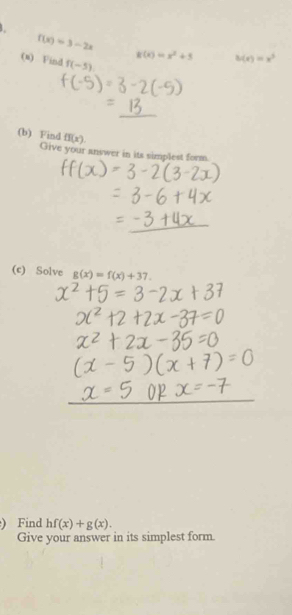 f(x) = 3 − 2x g(x) = x² + 5 h(x) = x²
(a) Find f(−5).
f(-5) = 3 - 2(-5)
= 13
(b) Find ff(x).
Give your answer in its simplest form.
ff(x) = 3 - 2(3-2x)
= 3 - 6 + 4x
= -3 + 4x
(c) Solve g(x) = f(x) + 37.
x² + 5 = 3 - 2x + 37
x² + 2 + 2x - 37 = 0
x² + 2x - 35 = 0
(x - 5)(x + 7) = 0
x = 5 OR x = -7
) Find hf(x) + g(x).
Give your answer in its simplest form.